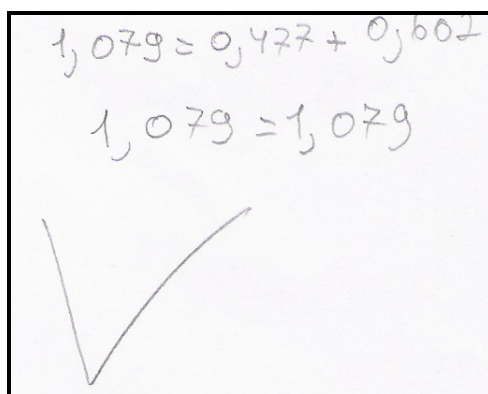 1,079 = 0,477 + 0,602
1,079 = 1,079